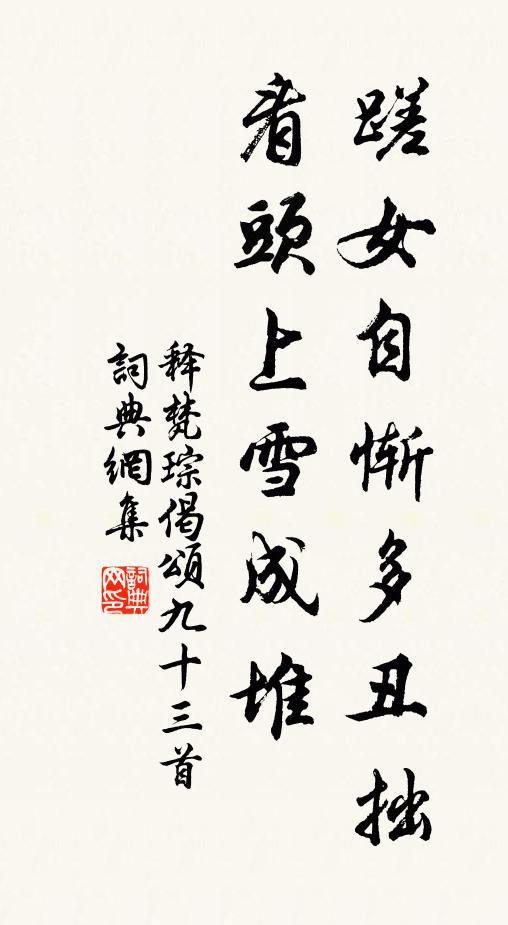 蹉女自惭多丑拙
看頭上雪成堆
释梵琮偈頌九十三首
詞典網集
詞典網印